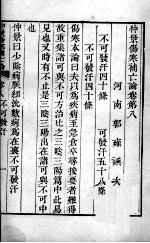 仲景傷寒補亡論卷第八
河南郭雍撰次
不可發汗四十條
不可發汗五十八條
不可發汗四十條
傷寒本論曰夫以為疾病至急倉卒尋按要者難得
故重集諸可與不可方治比之三陰三陽篇中此易
見也又時有不止是三陰三陽出在諸可與不可中
仲景曰少陰病脈細沈數病為在裏不可發汗